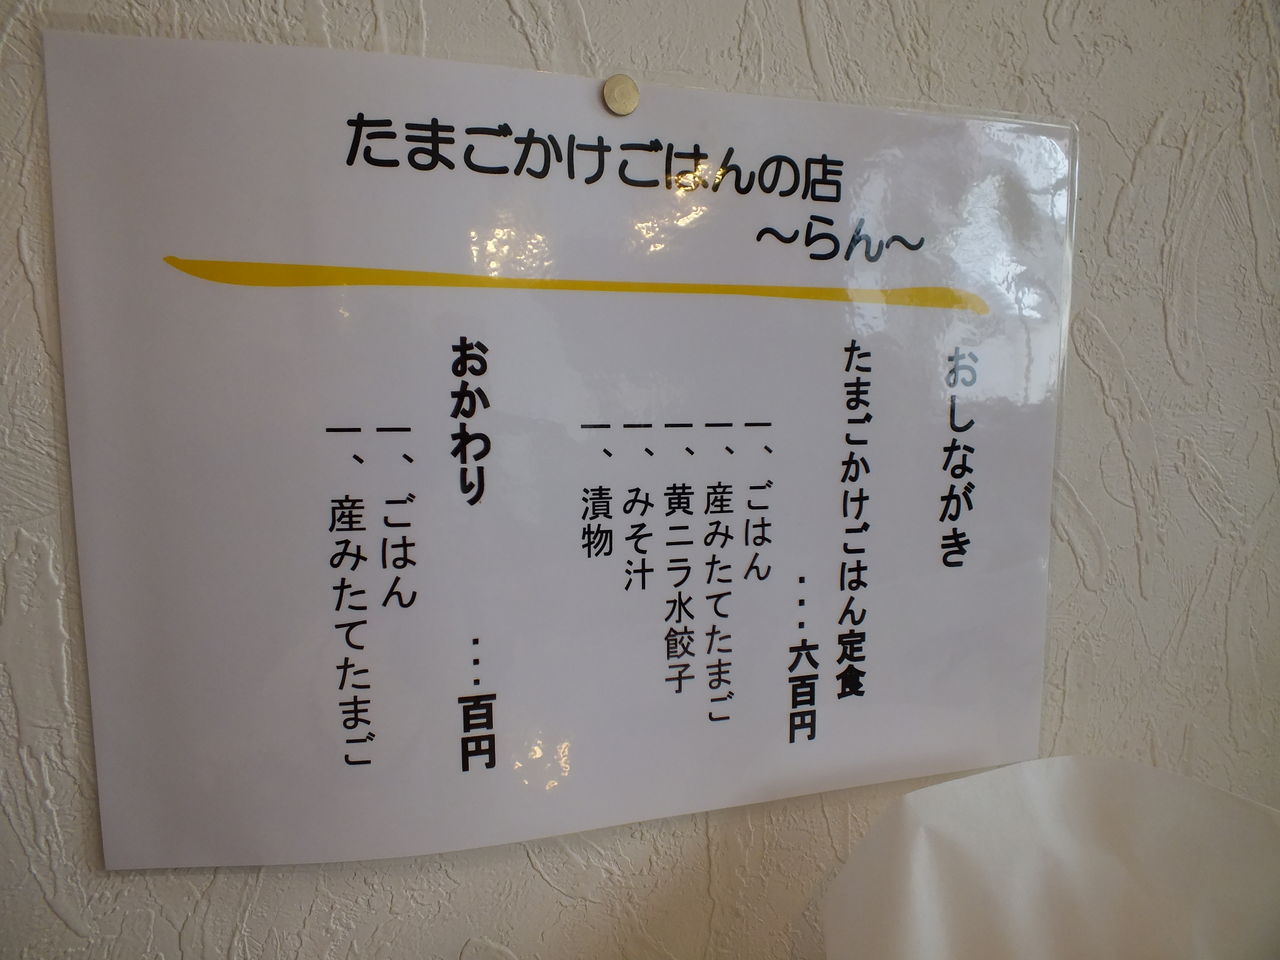 たまごかけごはんの店
～らん～
おしながき
たまごかけごはん定食
・・・六百円
一、ごはん
一、産みたてたまご
一、黄ニラ水餃子
一、みそ汁
一、漬物
おかわり ・・・百円
一、ごはん
一、産みたてたまご